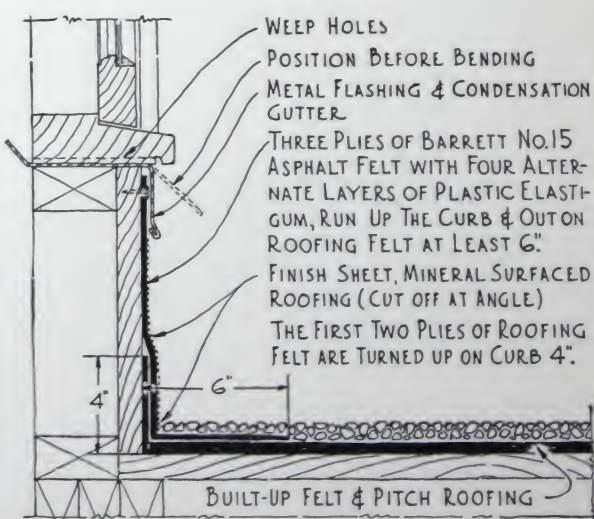 WEEP HOLES
POSITION BEFORE BENDING
METAL FLASHING & CONDENSATION
GUTTER
THREE PLIES OF BARRETT NO.15
ASPHALT FELT WITH FOUR ALTER-
NATE LAYERS OF PLASTIC ELASTI-
GUM, RUN UP THE CURB & OUT ON
ROOFING FELT AT LEAST 6".
FINISH SHEET, MINERAL SURFACED
ROOFING (CUT OFF AT ANGLE)
THE FIRST TWO PLIES OF ROOFING
FELT ARE TURNED UP ON CURB 4".
4"
6"
BUILT-UP FELT & PITCH ROOFING